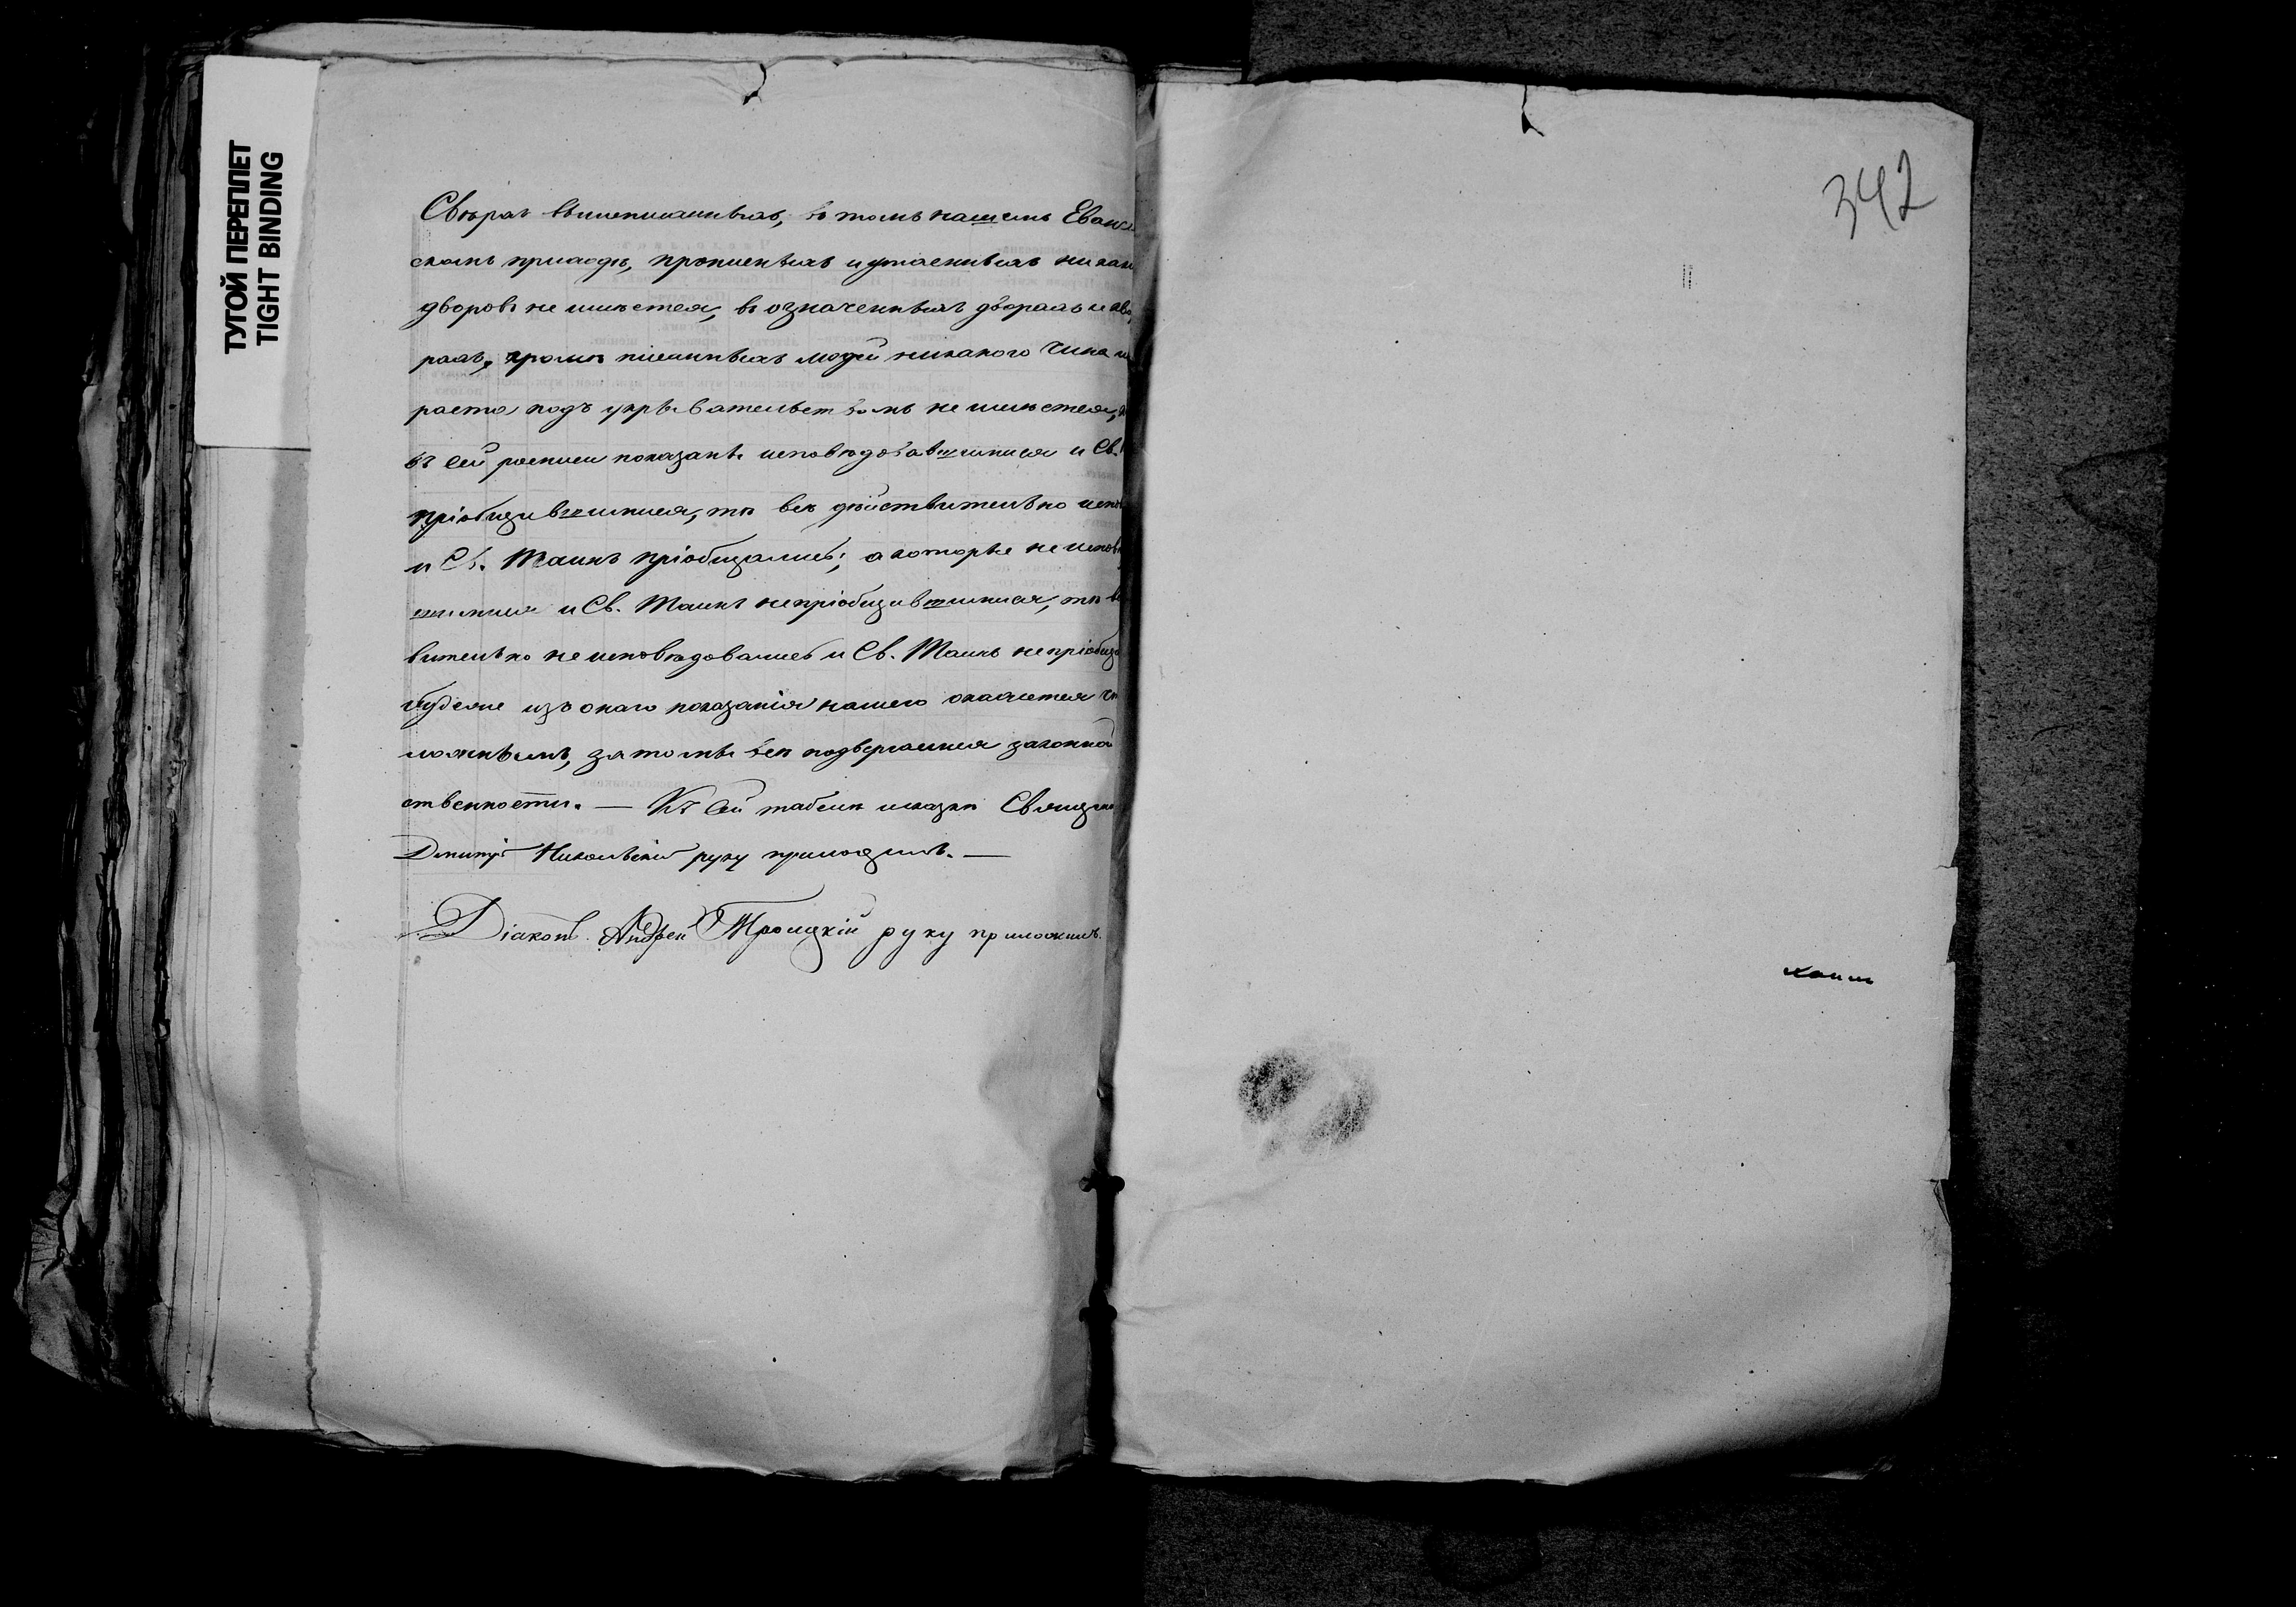 ТУГОЙ ПЕРЕПЛЕТ
TIGHT BINDING
342
Сверхъ вышеписанныхъ, въ томъ нашемъ
скомъ приходѣ, прописныхъ и утаенныхъ
дворовъ не имѣется, въ означенныхъ дворахъ
рахъ, кромѣ писанныхъ людей никакого чина
раста подъ укрывательствомъ не имѣется,
въ сей росписи показаны исповѣдовавшимися и Св.
пріобщившимися, тѣ всѣ дѣйствительно
и Св. Таинъ пріобщались; а которые не
шимися и Св. Таинъ непріобщившимися, тѣ
вительно не исповѣдовались и Св. Таинъ
буде же изъ онаго показанія нашего окажется
ложнымъ, за то мы всѣ подвергаемся
ственности. — Къ сей табели и сказкѣ
Дмитрій Никольскій руку приложилъ. —
Діаконъ Андрей Троицкій руку приложилъ.